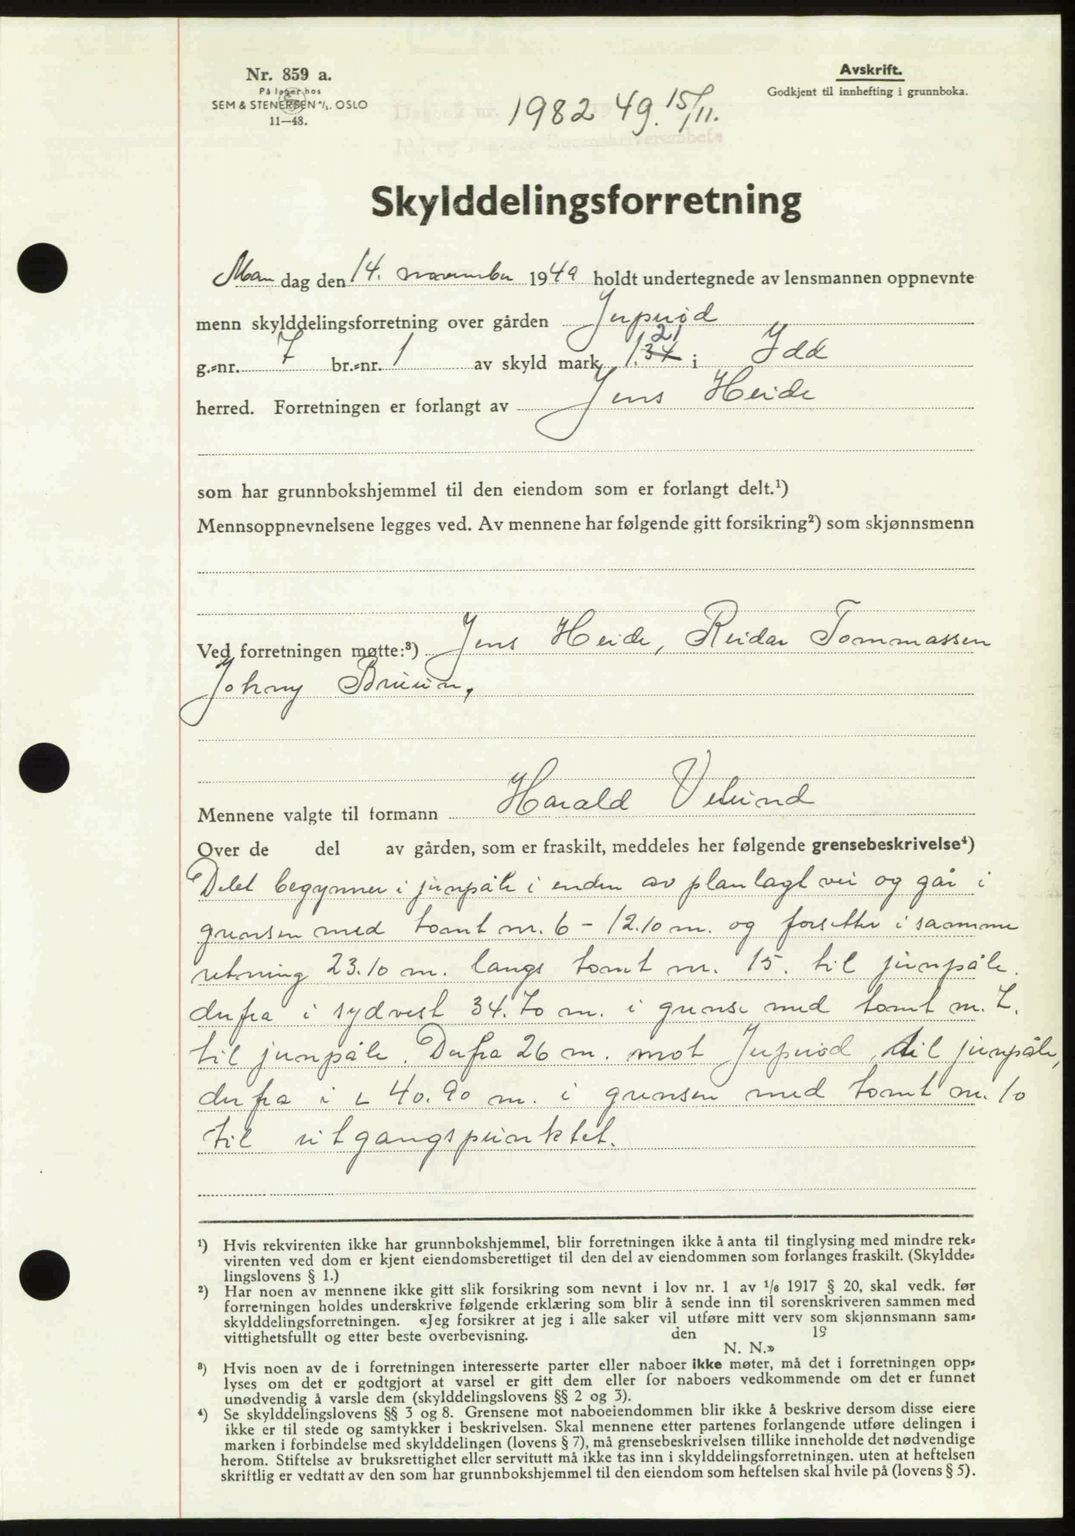 Nr. 859 a.
På lager hos
SEM & STENERSEN A/S, OSLO
11—48.
Avskrift.
Godkjent til innhefting i grunnboka.
1982 49. 15/11.
Skylddelingsforretning
Man dag den 14. november 1949 holdt undertegnede av lensmannen oppnevnte
menn skylddelingsforretning over gården Jupnød
g.-nr. 7 br.-nr. 1 av skyld mark 1.34 21 i Idd
herred. Forretningen er forlangt av Jens Heide
som har grunnbokshjemmel til den eiendom som er forlangt delt.¹)
Mennsoppnevnelsene legges ved. Av mennene har følgende gitt forsikring²) som skjønnsmenn
Ved forretningen møtte:³) Jens Heide, Reidar Tommassen
Johny Bruun,
Mennene valgte til formann Harald Velund
Over de del av gården, som er fraskilt, meddeles her følgende grensebeskrivelse⁴)
Delet begynner i jernpåle i enden av planlagt vei og går i
grensen med tomt nr. 6 - 12.10 m. og forsetter i samme
retning 23.10 m. langs tomt nr. 15. til jernpåle.
derfra i sydvest 34.70 m. i grense med tomt nr. 7.
til jernpåle. Derfra 26 m. mot Jupnød til jernpåle,
derfra i ∟ 40.90 m. i grensen med tomt nr. 10
til utgangspunktet.
¹) Hvis rekvirenten ikke har grunnbokshjemmel, blir forretningen ikke å anta til tinglysing med mindre rek-
virenten ved dom er kjent eiendomsberettiget til den del av eiendommen som forlanges fraskilt. (Skyldde-
lingslovens § 1.)
²) Har noen av mennene ikke gitt slik forsikring som nevnt i lov nr. 1 av 1/6 1917 § 20, skal vedk. før
forretningen holdes underskrive følgende erklæring som blir å sende inn til sorenskriveren sammen med
skylddelingsforretningen. «Jeg forsikrer at jeg i alle saker vil utføre mitt verv som skjønnsmann sam-
vittighetsfullt og etter beste overbevisning. den 19
N. N.»
³) Hvis noen av de i forretningen interesserte parter eller naboer ikke møter, må det i forretningen opp-
lyses om det er godtgjort at varsel er gitt dem eller for naboers vedkommende om det er funnet
unødvendig å varsle dem (skylddelingslovens §§ 2 og 3).
⁴) Se skylddelingslovens §§ 3 og 8. Grensene mot naboeiendommen blir ikke å beskrive dersom disse eiere
ikke er til stede og samtykker i beskrivelsen. Skal mennene etter partenes forlangende utføre delingen i
marken i forbindelse med skylddelingen (lovens § 7), må grensebeskrivelsen tillike inneholde det nødvendige
herom. Stiftelse av bruksrettighet eller servitutt må ikke tas inn i skylddelingsforretningen. uten at heftelsen
skriftlig er vedtatt av den som har grunnbokshjemmel til den eiendom som heftelsen skal hvile på (lovens § 5).